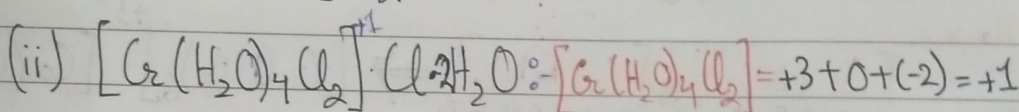 (ii) [Cr(H₂O)₄Cl₂]⁺¹·Cl·2H₂O:-[Cr(H₂O)₄Cl₂] = +3+0+(-2) = +1